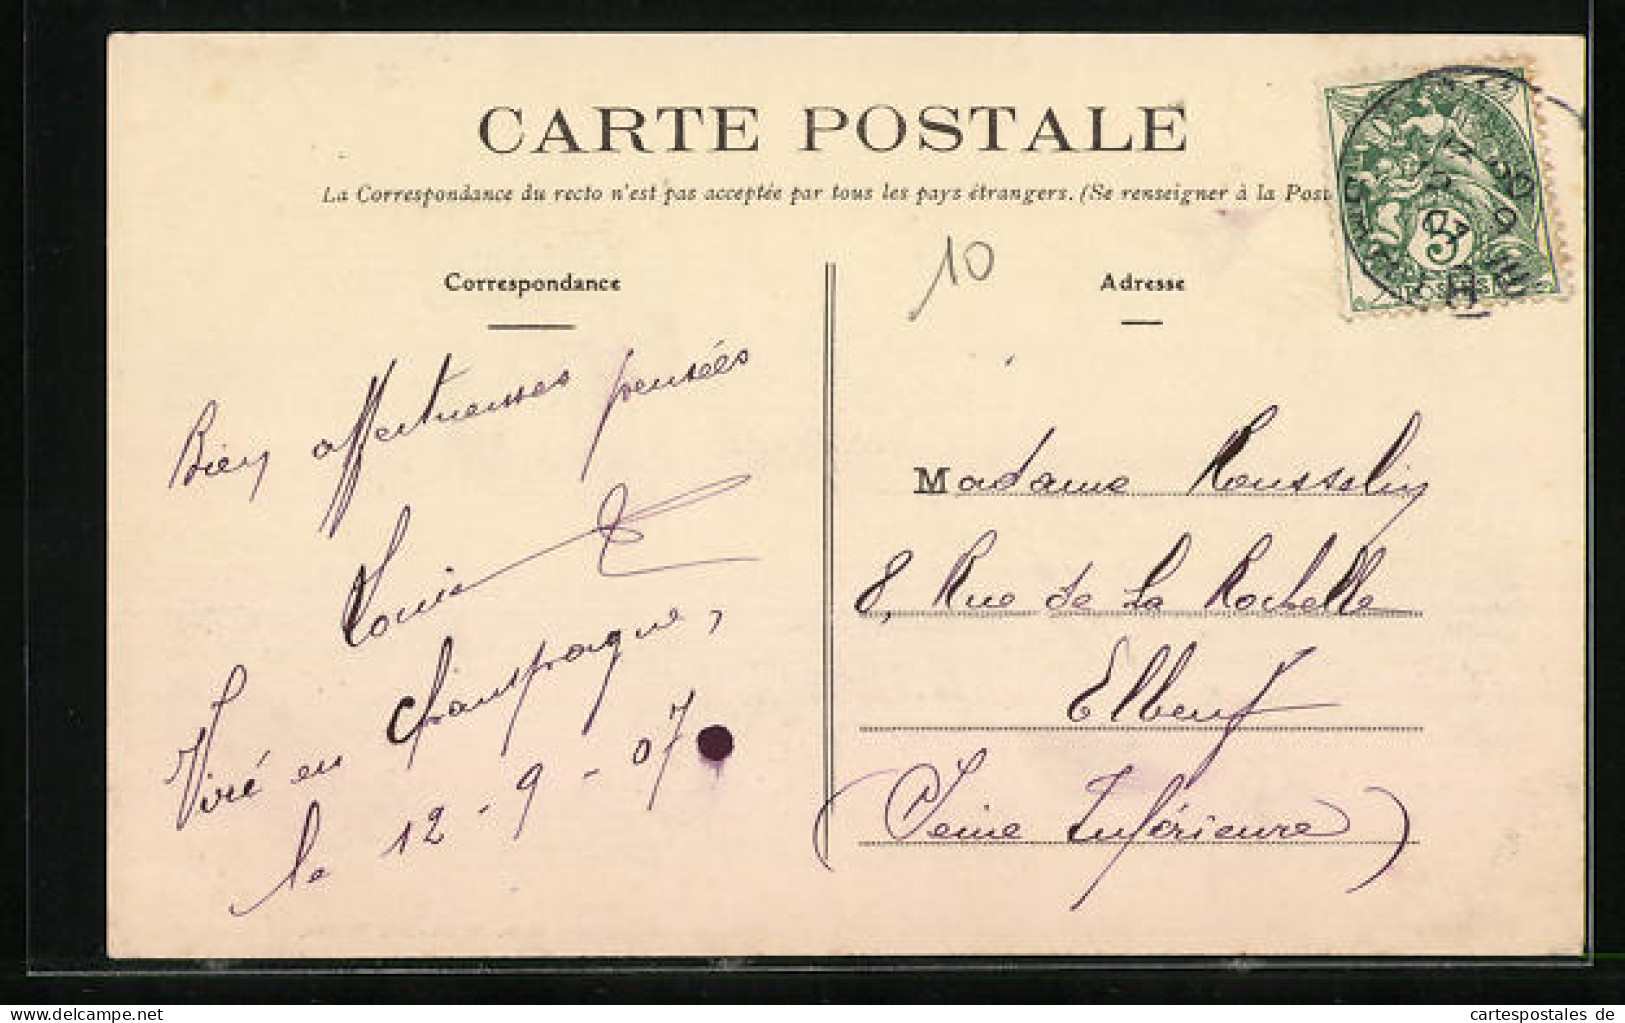 CARTE POSTALE
La Correspondance du recto n'est pas acceptée par tous les pays étrangers. (Se renseigner à la Post
10
Correspondance
Bien affectueuses pensées
Louise
Viré en Champagne,
le 12-9-07
Adresse
Madame Rousselin
8, Rue de La Rochelle
Elbeuf
(Seine Inférieure)
3
POSTES
www.cartespostales.de
cartespostales de